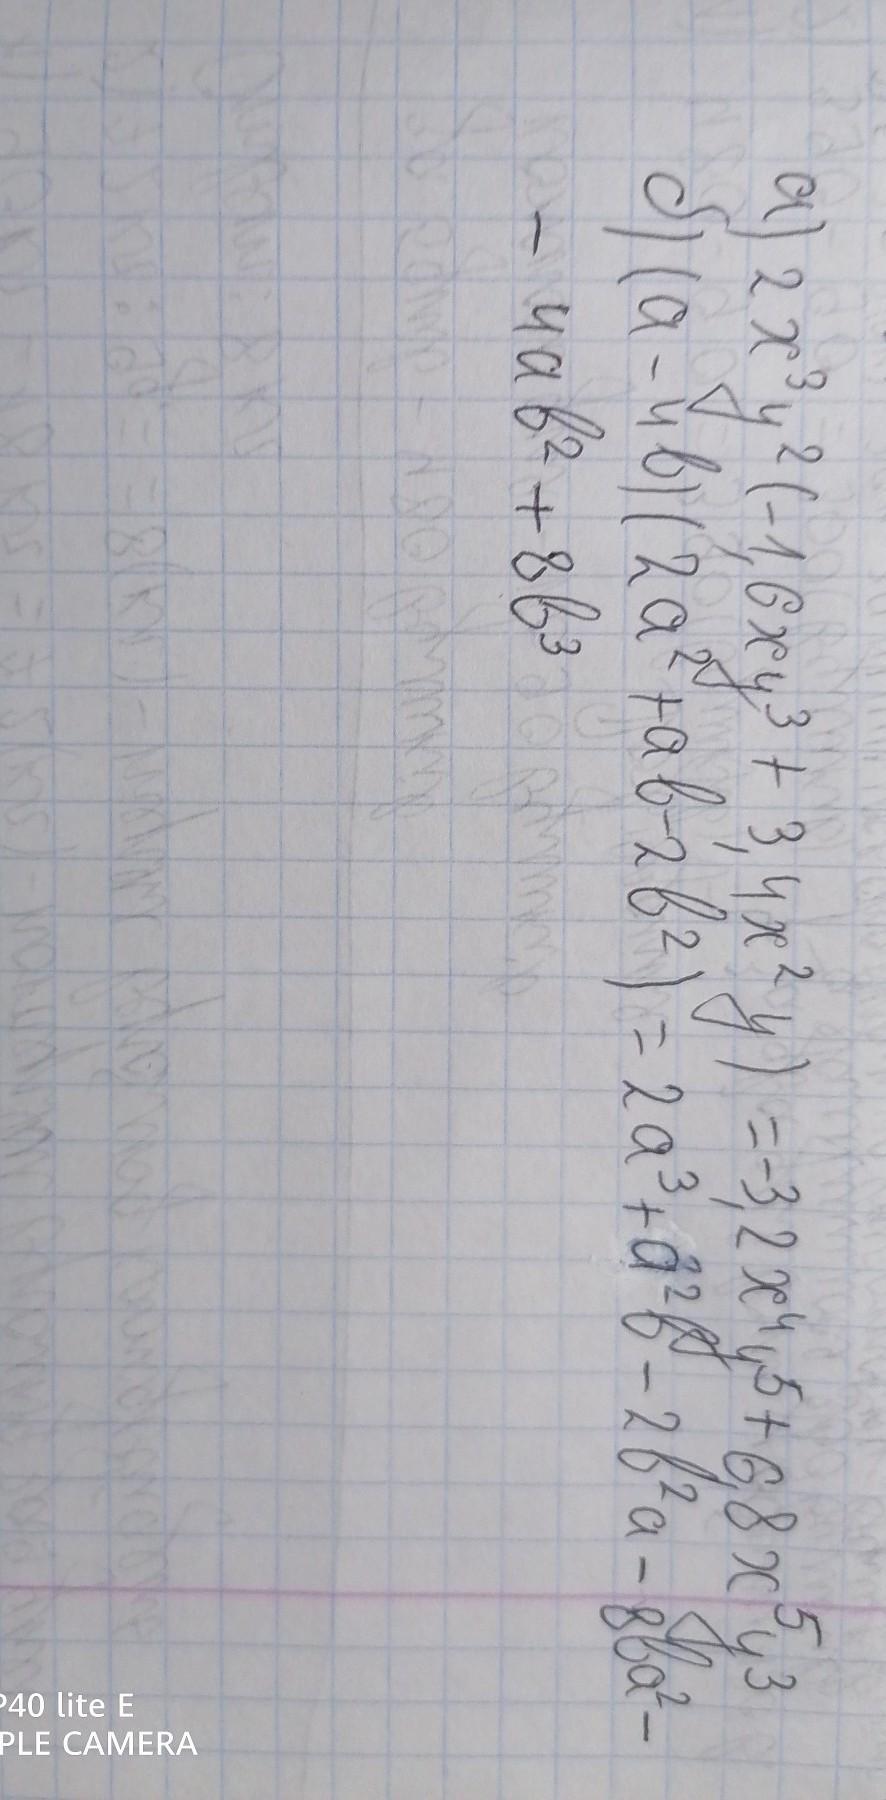 а) 2x³y²(-1,6xy³ + 3,4x²y) = -3,2x⁴y⁵ + 6,8x⁵y³
б) (a - 4b)(2a² + ab - 2b²) = 2a³ + a²b - 2b²a - 8ba² -
- 4ab² + 8b³
P40 lite E
PLE CAMERA